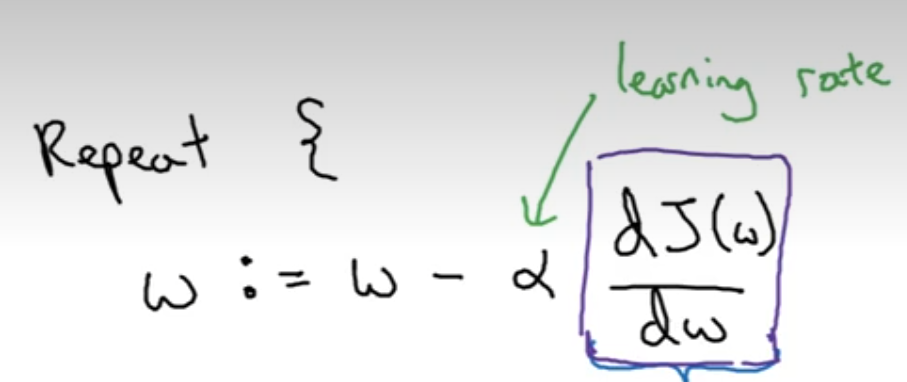 learning rate
Repeat {
w := w - α dJ(w)/dw